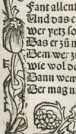 Fant allent
Und das e
wer yetz so
Das er zů n
Dem wer z
wie wol d
Dann wem
Der mag n